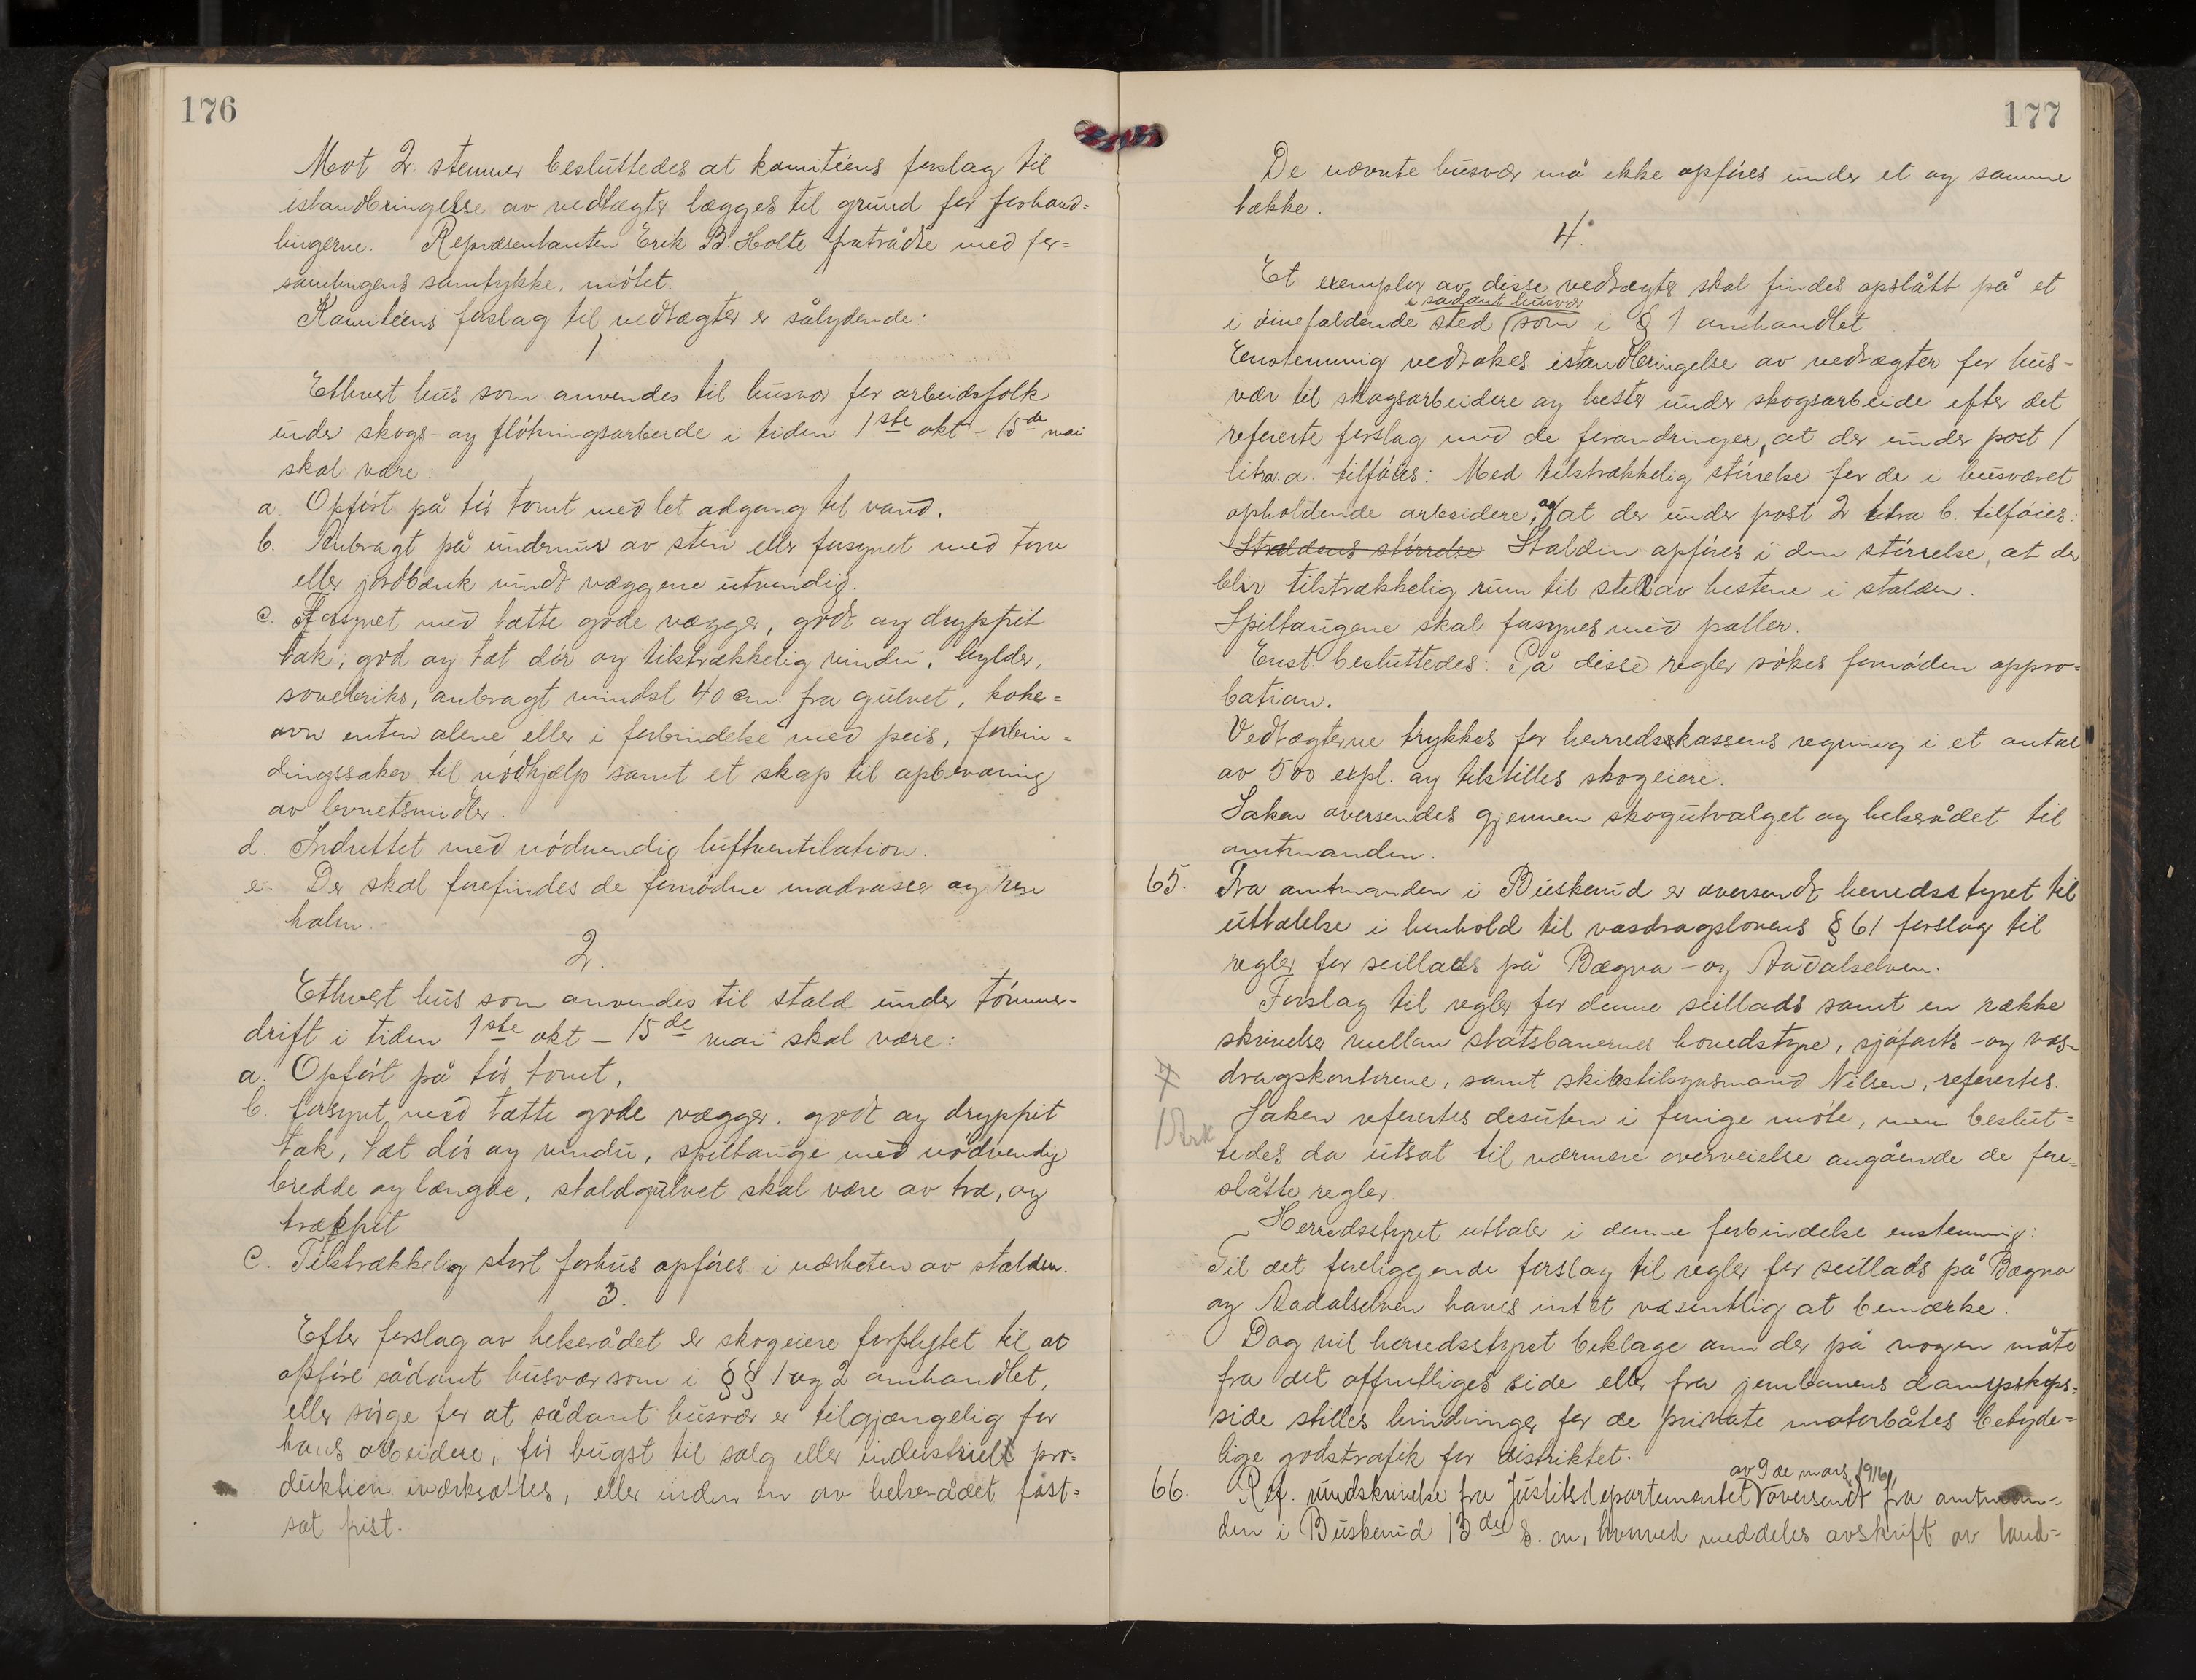 176
Mot 2 stemmer besluttedes at komitéens forslag til
istandbringelse av vedtægter lægges til grund for forhand=
lingerne. Repræsentanten Erik B. Holte fratrådte med for=
samlingens samtykke, mötet.
Komitéens forslag til vedtægter er sålydende:
1
Ethvert hus som anvendes til husvær for arbeidsfolk
under skogs- og flötningsarbeide i tiden 1ste okt - 15de mai
skal være:
a. Opfört på tör tomt med let adgang til vand.
b. Anbragt på undermur av sten eller forsynet med torv
eller jordbænk rundt væggene utvendig.
c. Forsynet med tætte gode vægger, godt og dryppfrit
tak, god og tæt dör og tilstrækkelig vindu, hylder,
sovebriks, anbragt mindst 40 cm. fra gulvet, koke=
ovn enten alene eller i forbindelse med peis, forbin=
dingssaker til nödhjælp samt et skap til opbevaring
av levnetsmidler.
d. Indrettet med nödvendig luftventilation.
e. Der skal forefindes de fornødne madrasser og ren
halm.
2.
Ethvert hus som anvendes til stald under tömmer-
drift i tiden 1ste okt - 15de mai skal være:
a. Opfört på tör tomt,
b. forsynt med tætte gode vægger, godt og dryppfrit
tak, tæt dör og vindu, spiltauge med nødvendig
bredde og længde, staldgulvet skal være av træ, og
trækfrit
c. Tilstrækkelig stort forhus opföres i nærheten av stalden.
3.
Efter forslag av helserådet er skogeiere forpligtet til at
opföre sådant husvær som i §§ 1 og 2 omhandlet,
eller sörge for at sådant husvær er tilgjængelig for
hans arbeidere, för hugst til salg eller industriel pro=
duktion iværksættes, eller inden en av helserådet fast=
sat frist.
177
De nævnte husvær må ikke opföres under et og samme
tække.
4.
Et exemplar av disse vedtægter skal findes opslått på et
i sådant husvær
i öinefaldende sted som i § 1 omhandlet
Enstemmig vedtokes istandbringelse av vedtægter for hus-
vær til skogsarbeidere og hester under skogsarbeide efter det
refererte forslag med de forandringer, at der under post 1
litra a. tilföies: Med tilstrækkelig störrelse for de i husværet
opholdende arbeidere, og at der under post 2 litra b. tilföies:
Staldens störrelse Stalden opföres i den störrelse, at der
blir tilstrækkelig rum til stell av hestene i stalden.
Spiltaugene skal forsynes med paller.
Enst. besluttedes: På disse regler sökes fornöden appro=
bation.
Vedtægterne trykkes for herredskassens regning i et antal
av 500 expl. og tilstilles skogeiere.
Saken oversendes gjennem skogutvalget og helserådet til
amtmanden.
65. Fra amtmanden i Buskerud er oversendt herredsstyret til
uttalelse i henhold til vasdragslovens § 61 forslag til
regler for seillads på Bægna- og Aadalselven.
Forslag til regler for denne seillads samt en række
skrivelser mellem statsbanernes hovedstyre, sjöfarts- og vas-
dragskontorene, samt skibstilsynsmand Nilsen, referertes.
Saken referertes desuten i forrige möte, men beslut=
tedes da utsat til nærmere overveielse angående de fore=
slåtte regler.
Herredsstyret uttaler i denne forbindelse enstemmig:
Til det foreliggende forslag til regler for seillads på Bægna
og Aadalselven haves intet væsentlig at bemærke.
Dog vil herredsstyret beklage om der på nogen måte
fra det offentliges side eller fra jernbanens dampskips=
side stilles hindringer for de private motorbåtes betyde=
lige godstrafik for distriktet.
av 9de mars 1916,
66. Ref. rundskrivelse fra Justitsdepartementet oversendt fra amtman=
den i Buskerud 13de s. m, hvorved meddeles avskrift av land=